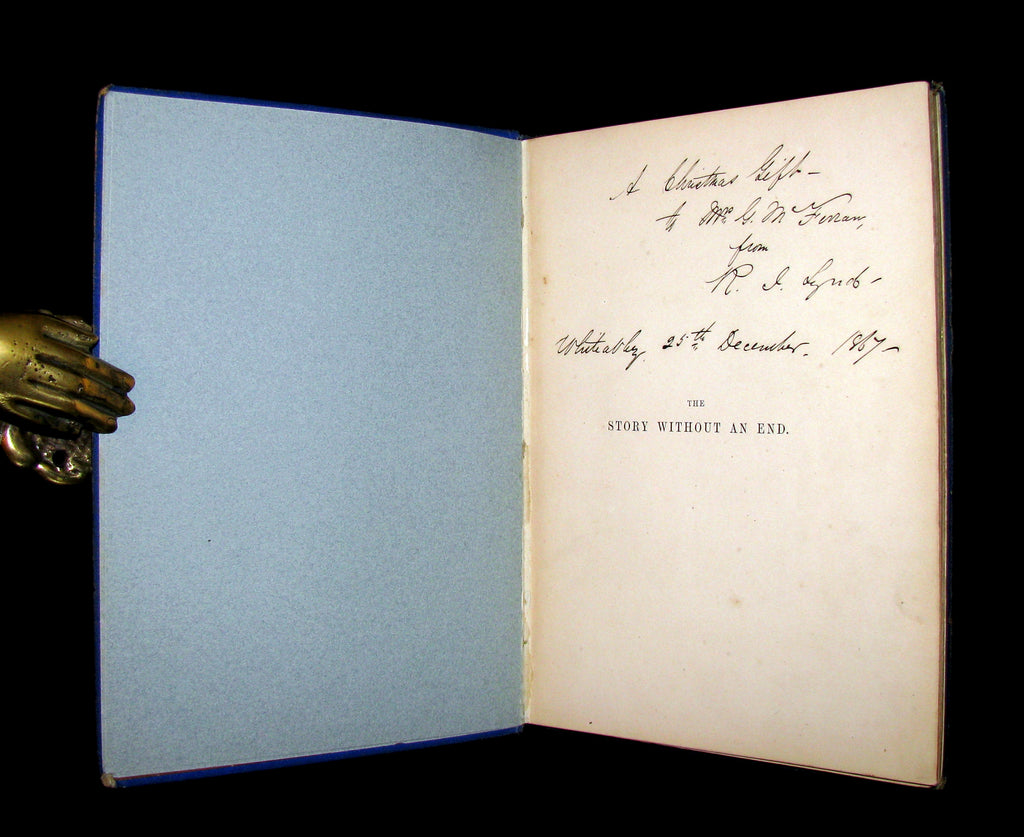 A Christmas Gift –
to Mrs G. Mc Ferran,
from
R. I. Lynd –
Whiteabbey, 25th December. 1867 –
THE
STORY WITHOUT AN END.